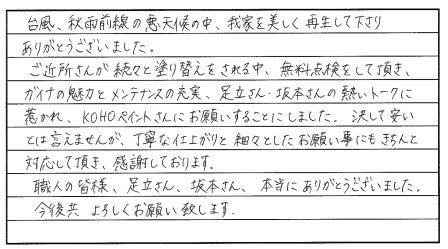 台風、秋雨前線の悪天候の中、我家を美しく再生して下さり
ありがとうございました。
ご近所さんが続々と塗り替えをされる中、無料点検をして頂き、
ガイナの魅力とメンテナンスの充実、足立さん・坂本さんの熱いトークに
惹かれ、KOHOペイントさんにお願いすることにしました。決して安い
とは言えませんが、丁寧な仕上がりと細々としたお願い事にもきちんと
対応して頂き、感謝しております。
職人の皆様、足立さん、坂本さん、本当にありがとうございました。
今後共よろしくお願い致します.